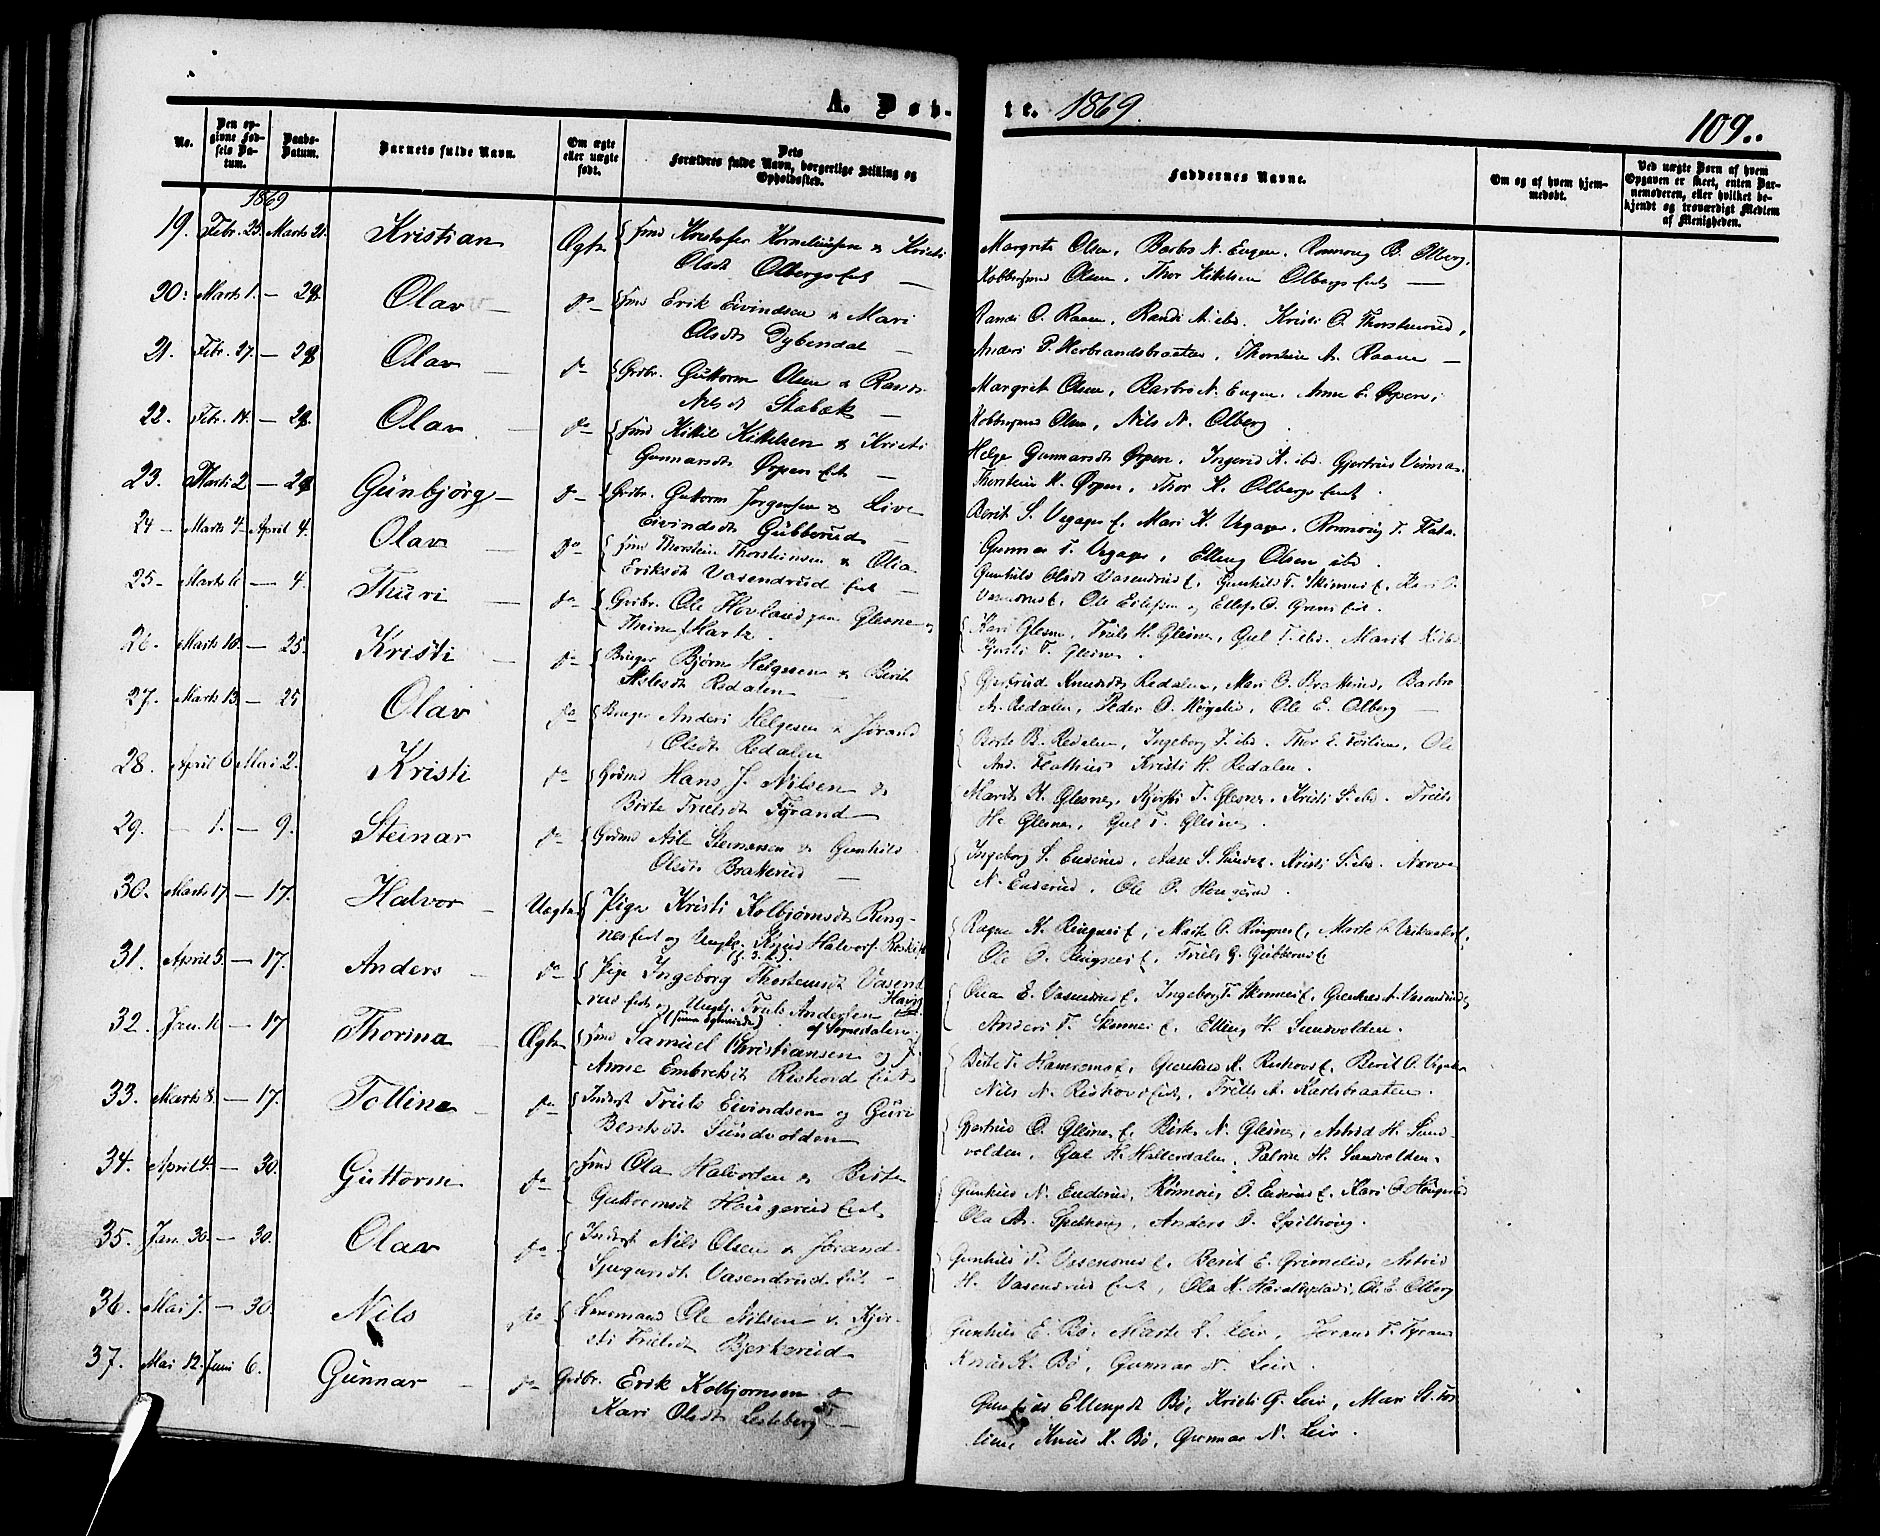 A. Døb-
te. 1869.
109.
No.
Den op-
givne Fød-
sels Da-
tum.
Daabs-
Datum.
Barnets fulde Navn.
Om ægte
eller uægte
født.
Dets
Forældres fulde Navn, borgerlige Stilling og
Opholdssted.
Faddernes Navne.
Om og af hvem hjem-
medøbt.
Ved uægte Børn af hvem
Opgaven er skeet, enten Bar-
nemoderen, eller hvilket be-
kjendt og troværdigt Medlem
af Menigheden.
1869
19. Febr. 23. Marts 21. Kristian Ægte Kristofer Korneliussen & Kristi
Olsdt Olbergs
Margrete Olsen, Barbro N. Engen, Rønnoug B. Olberg,
Kolbjørnd Olsen, Thor Kittelsen Olbergs
20. Marts 1. — 28. Olav do Erik Eivindsen & Mari
Olsdt Dybendal
Randi O. Raaen, Randi A. ibd. Kristi O. Thorsteinrud,
Anders P. Herbrandsbraaten, Thorstein A. Raaen
21. Febr. 27. — 28. Olav do Grdbr. Guttorm Olsen & Randi
Nilsdt Stabæk
Margrit Olsen, Barbro N. Engen, Anne E. Ørpen,
Olsen, Nils N. Olberg
22. Febr. 14. — 28. Olav do Kittil Kittelsen & Kristi
Gunnarsdt Ørpen
Helge Gunnarsdt Ørpen, Ingerid K. ibd. Gjertrud
Thorstein K. Ørpen, Thor K. Olbergs
23. Marts 2 — 28 Gunbjörg do Grdbr. Guttorm Jørgensen & Live
Eivindsdt Gubberud
Berit S. Vegager, Mari K. Vegager, Rønnoug T. Flata
Gunnar T. Vegager, Elling Olsen ibd.
24 — Marts 4 — April 4. Olav do Thorstein Thorsteinsen & Olia
Eriksdt Vasendrud
Gunhild Olsdt Vasendrud, Gunhild T. Skinnes, Kari
Ole Eilefsen, Ellef O.
25. Marts 6 — 4. Thuri do Grdbr. Ole Hovland paa Glesne &
Marte.
Kari Glesne, Truls H. Glesne, Gul T. ibd. Marit K. ibd
Kjersti T. Glesne.
26. Marts 10. — 25. Kristi do Bruger Bjørn Helgesen & Berit
Redalen
Gjertrud Knudsdt Redalen, Mari O. Brakerud, Barbro
A. Redalen, Peder O. Køgelie, Ole E. Olberg
27. Marts 13. — 25 Olav do Bruger Anders Helgesen & Jørand
Olsdt Redalen
Børte B. Redalen, Ingeborg J. ibd. Thor E. Foslien, Ole
And. Flathus Kristi H. Redalen.
28. April 6 Mai 2. Kristi do Grdmd Hans J. Nilsen &
Børte Trulsdt Tyrand
Marit K. Glesne, Kjersti T. Glesne, Kristi S. ibd. Truls
H. Glesne, Gul T. Glesne.
29. — 1. — 9. Steinar do Grdmd Asle Steinarsen & Gunhild
Olsdt Brakerud
Ingeborg S. Enderud, Aase S. Kristi S. ibd.
N. Enderud, Ole O. Haugerud.
30. Marts 17. — 17. Halvor Uægte Pige Kristi Kolbjørnsdt Ring-
nes og Ungk. Knud Halvors.
(1. S. L.)
Ragne K. Ringnes, Marte O. Ringnes, Marte
Ole O. Ringnes, Truls G. Gubberud
31. April 5. — 17. Anders do Pige Ingeborg Thorsteinsdt Vasend
rud og Ungk. Truls Andersen
af Sognedalen.
Olia E. Vasendrud, Ingeborg T. Skinnes, Gunhild A. Vasendrud
Anders T. Skinnes, Elling H. Sundvolden.
32. Jan. 10 — 17 Thorina Ægte Samuel Christiansen og
Anne Embretsdt Riskoved
Børte T. Gunhild N. Berit O.
Nils N. Truls A. Karlsbraaten.
33. Marts 8. — 17. Tolline do Inderst Truls Eivindsen og Guri
Bentsdt Sundvolden
Gjertrud O. Glesne, Børte N. Glesne, Astrid H. Sund-
volden, Gul H. Halterdalen, Palme H. Sundvolden.
34. April 4. — 30. Guttorm do Ola Halvorsen & Birte
Guttormsdt Haugerud
Gunhild N. Enderud, Rønnoug O. Enderud, Kari O. Haugerud
Ola A. Spilhoug, Anders O. Spilhoug.
35. Jan. 30. — 30. Olav do Inderst Nils Olsen & Jørand
Sjugurdt Vasendrud
Gunhild T. Vasendrud, Berit E. Grimelid, Astrid
H. Vasendrud, Ola K. Haraldsplads, Ole E. Olberg
36. Mai 7. — 30. Nils do Lensmand Ole Nilsen & Kjer-
sti Trulsdt Bjerkerud
Gunhild E. Bø, Marte L. Leir, Joran T. Tyran
Knud K. Bø, Gunnar N. Leir.
37. Mai 12. Juni 6. Gunnar do Grdbr. Erik Kolbjørnsen &
Kari Olsdt Lesteberg
Gunhild Ellingsdt Bø, Kristi G. Leir, Mari St. Fos
liene, Knud K. Bø, Gunnar N. Leir.